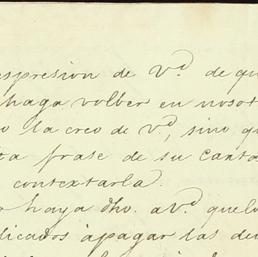 espresion de V.d de qu
haga volber en nosot
o la creo de V.d, sino qu
ta frase de su carta
contextarla.
r haya dho. a V.d quelo
dicados à pagar las deu